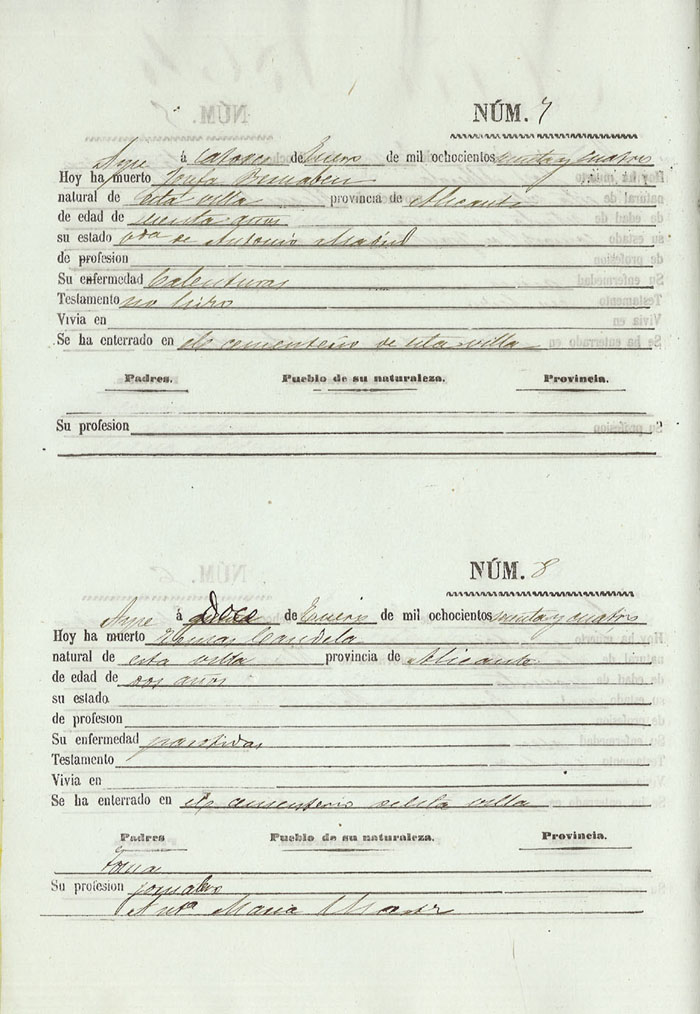 NÚM. 7
Aspe á catorce de Enero de mil ochocientos
Hoy ha muerto Josefa
natural de esta villa provincia de Alicante
de edad de años
su estado vda de Antonio
de profesion
Su enfermedad Calenturas
Testamento no hizo
Vivia en
Se ha enterrado en el cementerio de esta villa
Padres. Pueblo de su naturaleza. Provincia.
Su profesion
NÚM. 8
Aspe á doce de Enero de mil ochocientos
Hoy ha muerto Candela
natural de esta villa provincia de Alicante
de edad de dos años
su estado
de profesion
Su enfermedad
Testamento
Vivia en
Se ha enterrado en el cementerio de esta villa
Padres Pueblo de su naturaleza. Provincia.
Su profesion jornalero
Maria